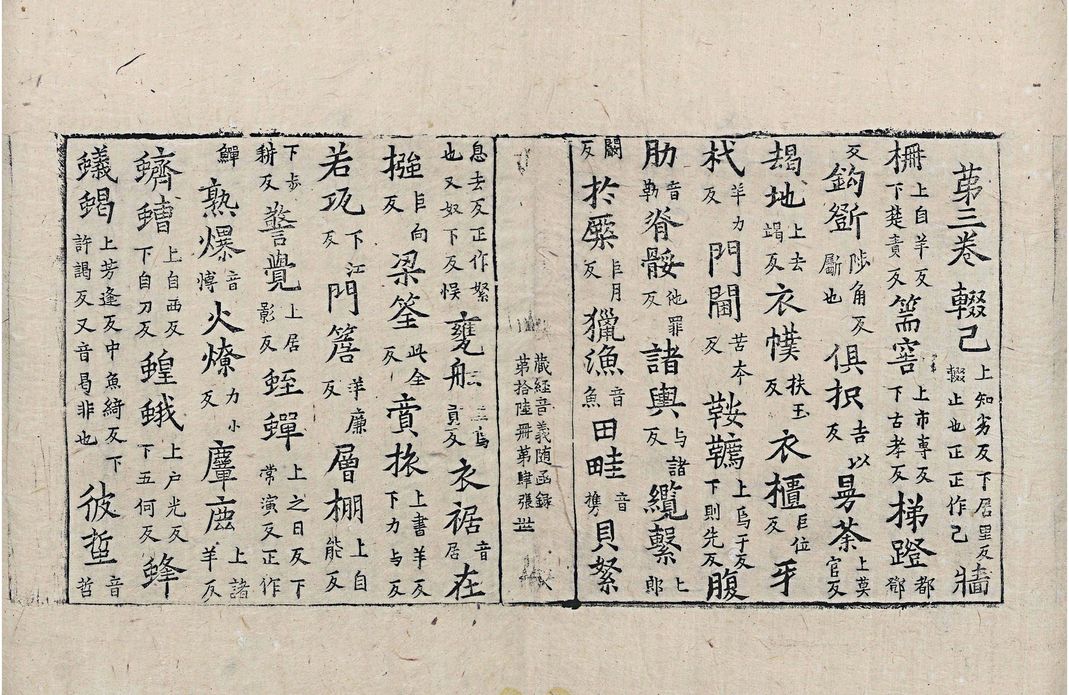 第三卷 輟己 上知劣反下居里反 輟止也正正作己 牆
柵 上自羊反 下楚責反 篅窖 上市專反 下古孝反 梯蹬 都鄧
反 鈎斵 陟角反 斵也 俱抧 吉以反 㝵荼 上莫官反
朅地 上去竭反 衣幞 扶玉反 衣櫃 巨位反 牙
杙 羊力反 門閫 苦本反 鞍韉 上烏于反 下則先反 腹
肋 音勒 脊骽 他罪反 諸輿 与諸反 纜繫 上郎
闞反 於橜 巨月反 獵漁 音魚 田畦 音攜 貝䋈
藏經音義随函録
第拾陸冊第肆張 世
息去反正作絮 也又奴下反悮 甕舩 二烏 貢反 衣裾 音居 在
摾 巨向反 梁筌 此全反 賣捺 上書羊反 下力与反
若瓨 下江反 門簷 羊廉反 層棚 上自能反
下步耕反 警覺 上居影反 蛭蟬 上之日反下 常演反正作
鱓 熟爆 音博 火燎 力小反 麞鹿 上諸羊反
蠐螬 上自西反 下自刀反 蝗蛾 上户光反 下五何反 蜂
蟻蝎 上芳逢反中魚綺反下 許謁反又音曷非也 彼蜇 音哲